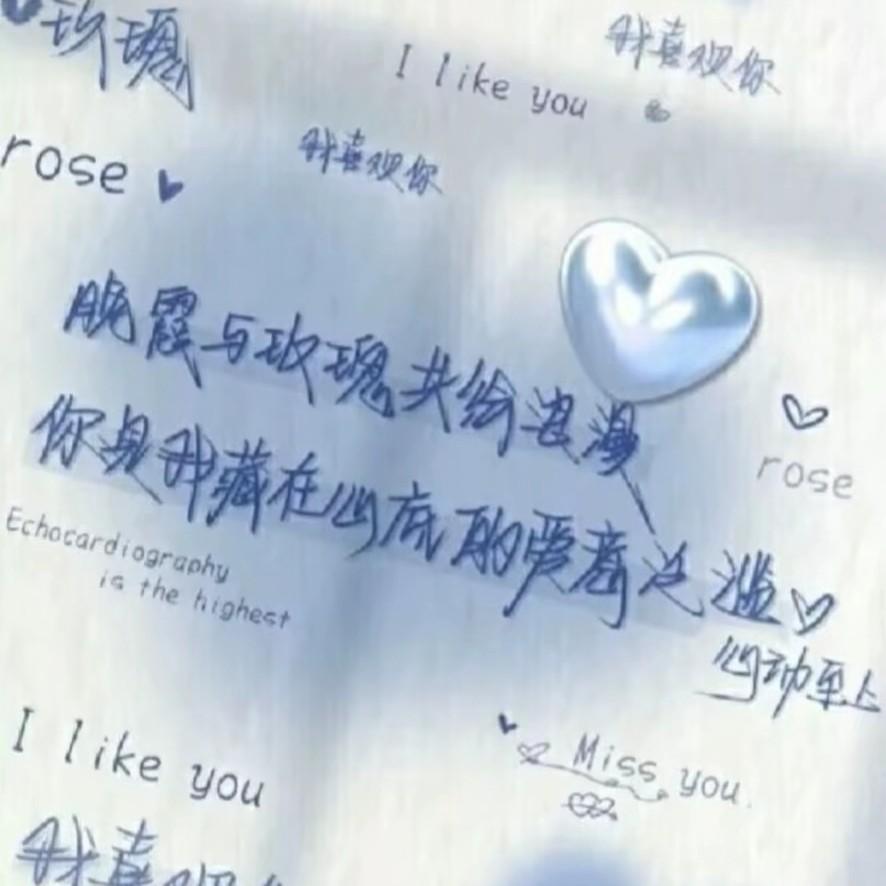 玫瑰
我喜欢你
I like you
rose
我喜欢你
晚霞与玫瑰共绘浪漫
rose
你是我藏在心底的爱意泛滥
Echocardiography
is the highest
心动至上
I like you
Miss you.
我喜欢